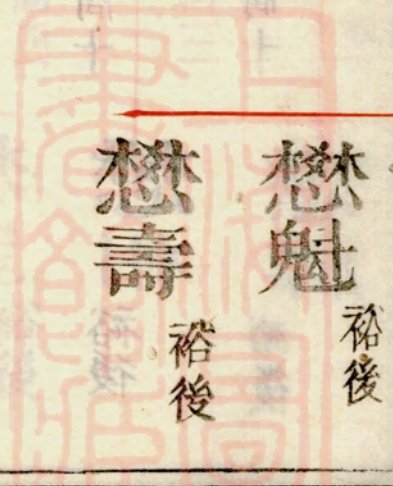 懋魁
裕後
懋壽
裕後